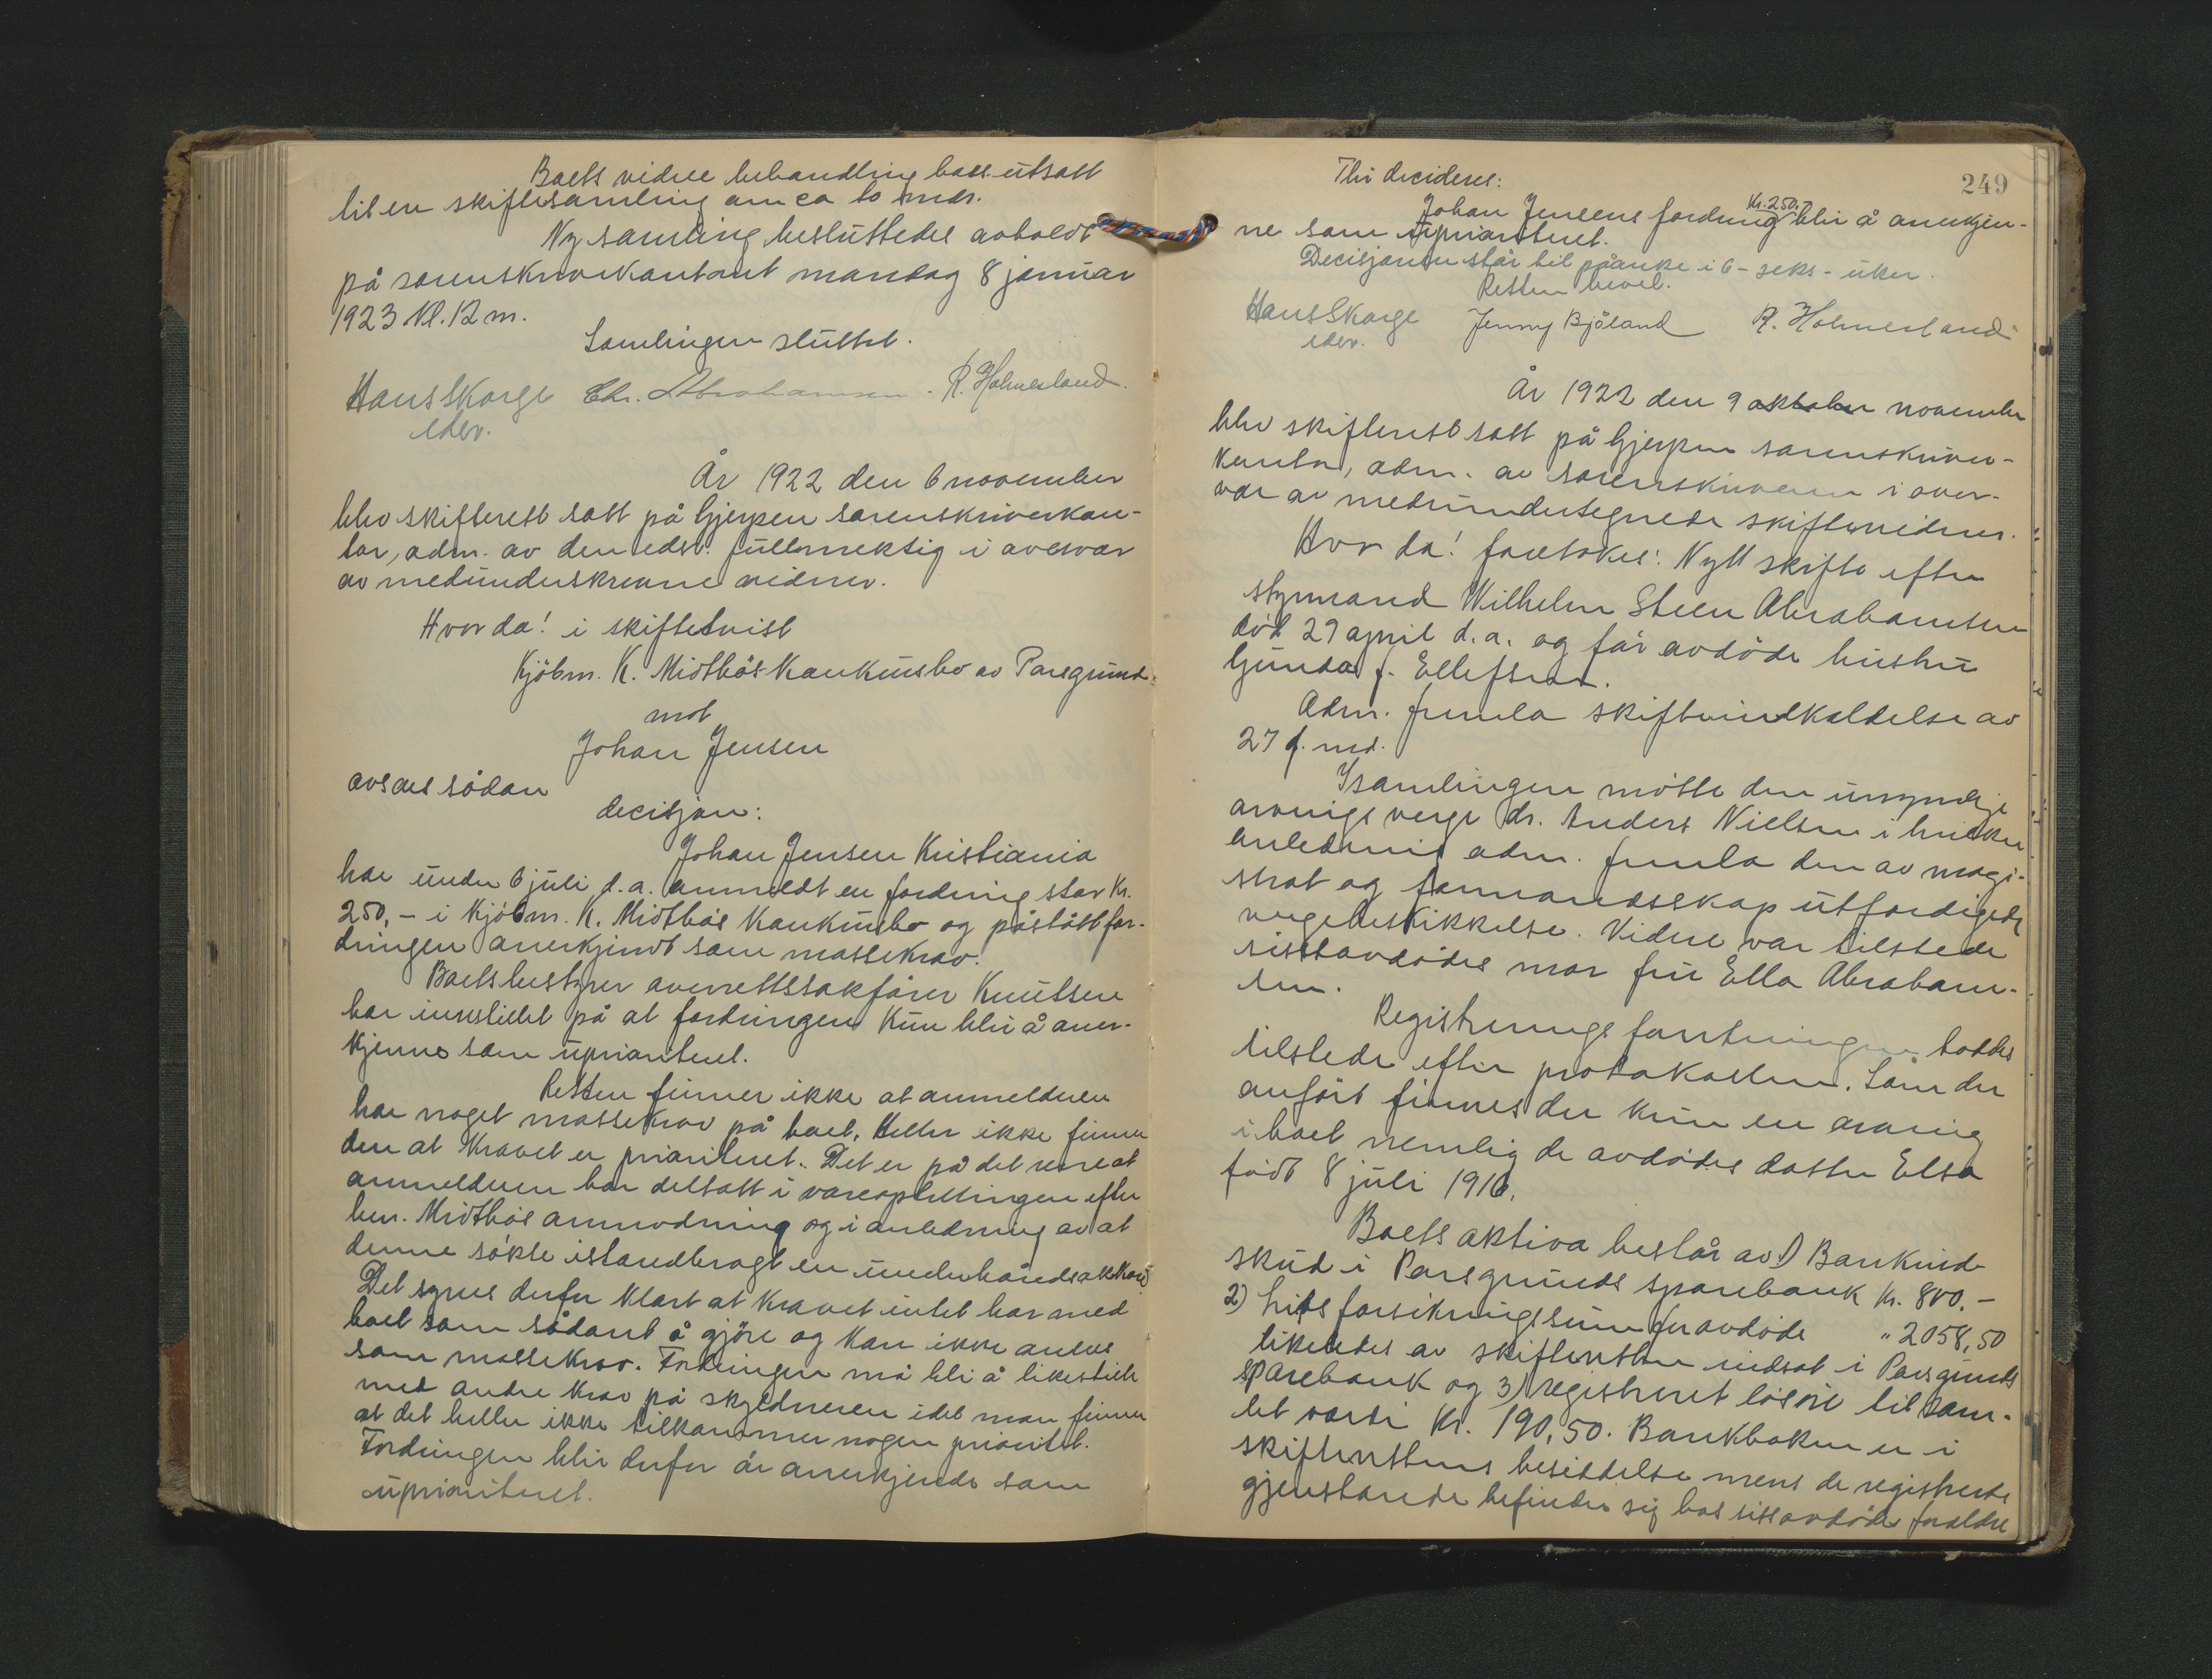 Boets videre behandling blev utsatt
til en skiftesamling om ca to mdr.
Ny samling besluttedes avholdt
på sorenskriverkontoret mandag 8 januar
1923 kl. 12 m.
Samlingen sluttet.
Hans Skorge Chr. Abrahamsen. R. Holmesland.
edsv.
År 1922 den 6 november
blev skifterett satt på Gjerpen sorenskriverkon-
tor, adm. av den edsv. fullmektig i overvær
av medunderskrevne vidner.
Hvor da! i skiftetvist
Kjøbm. K. Midtbøs konkursbo av Porsgrund
mot
Johan Jensen
avsaes sådan
decisjon:
Johan Jensen Kristiania
har under 6 juli d.a. anmeldt en fordring stor Kr.
250,- i Kjøbm. K. Midtbøs konkursbo og påstått for-
dringen anerkjendt som massekrav.
Boets bestyrer overrettssakfører Knutsen
har innstillet på at fordringen kun blir å aner-
kjenne som uprioriteret.
Retten finner ikke at anmelderen
har noget massekrav på boet, heller ikke finner
den at kravet er prioriteret. Det er på det rene at
anmelderen har deltatt i vareoptellingen efter
hr. Midtbøs anmodning og i anledning av at
denne søkte istandbragt en underhåndsakkord
Det synes derfor klart at kravet intet har med
boet som sådant å gjöre og kan ikke ansees
som massekrav. Fordringen må bli å likestille
med andre krav på skyldneren idet man finner
at det heller ikke tilkommer nogen prioritet.
Fordringen blir derfor år anerkjende som
uprioriteret.
249
Thi decideres:
Kr. 250,-
Johan Jensens fordring blir å anerkjen-
ne som uprioriteret.
Decisjonen står til påanke i 6 - seks - uker.
Retten hevet.
Hans Skorge Jenny Bjåland R. Holmesland
edsv.
År 1922 den 9 oktober november
blev skifterett satt på Gjerpen sorenskriver-
kontor, adm. av sorenskriveren i over-
vær av medundertegnede skiftevidner.
Hvor da! foretokes: Nytt skifte efter
styrmand Wilhelm Steen Abrahamsen
død 29 april d.a. og før avdøde hustru
Gunda f. Ellefsen.
Adm. fremla skifteindkaldelse av
27 f. md.
I samlingen møtte den umyndige
arvings verge Hr. Anders Nielsen i hvilken
anledning adm. fremla den av magi-
strat og formandsskap utfærdigede
vergebeskikkelse. Videre var tilstede
sistavdødes mor fru Ella Abraham-
sen.
Registreringsforretningen toddes
tilstede efter protokollen. Som der
anført finnes der kun en arving
i boet nemlig de avdødes datter Elsa
født 8 juli 1916.
Boets aktiva består av 1) Bankind-
skud i Porsgrunds sparebank kr. 800.-
2) livsforsikringssum for avdøde " 2058,50
likeledes av skifteretten indsat i Porsgrunds
sparebank og 3) registreret løsøre til sam-
let værdi kr. 190,50. Bankboken er i
skifterettens besiddelse mens de registrerte
gjenstande befinder sig hos sistavdødes forældre